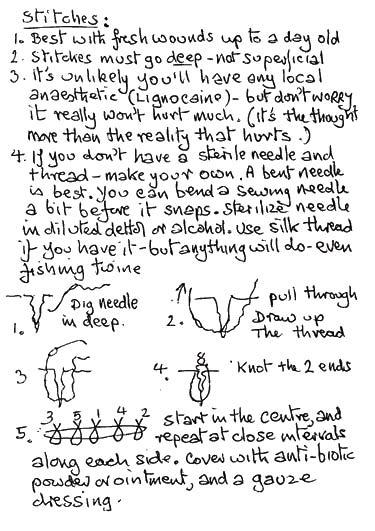 Stitches:
1. Best with fresh wounds up to a day old
2. Stitches must go deep - not superficial
3. it's unlikely you'll have any local
anaesthetic (Lignocaine) - but don't worry
it really won't hurt much. (it's the thought
more than the reality that hurts.)
4. If you don't have a sterile needle and
thread - make your own. A bent needle
is best. You can bend a sewing needle
a bit before it snaps. Sterilize needle
in diluted dettol or alcohol. Use silk thread
if you have it - but anything will do - even
fishing twine
1. Dig needle
in deep.
2. pull through
Draw up
The thread
3
4. Knot the 2 ends
8
3 5 1 4 2
5. start in the centre, and
repeat at close intervals
along each side. Cover with anti-biotic
powder or ointment, and a gauze
dressing.